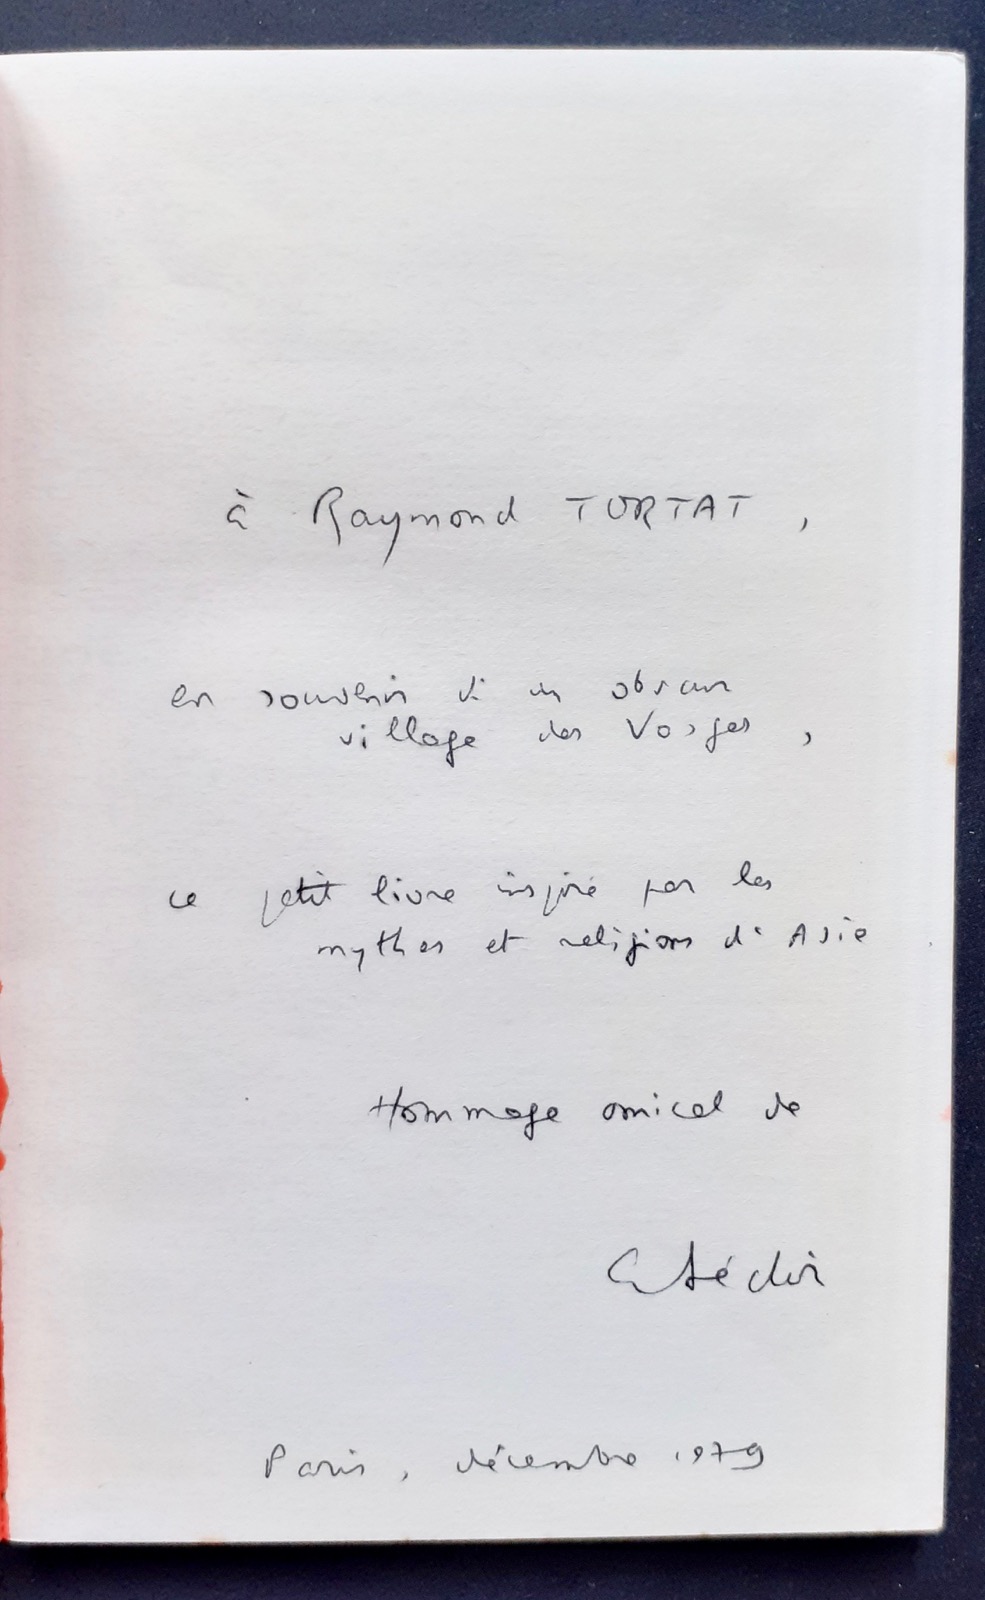 à Raymond TORTAT,
en souvenir d'un obscur
village des Vosges,
ce petit livre inspiré par les
mythes et religions d'Asie
Hommage amical de
Paris, décembre 1979